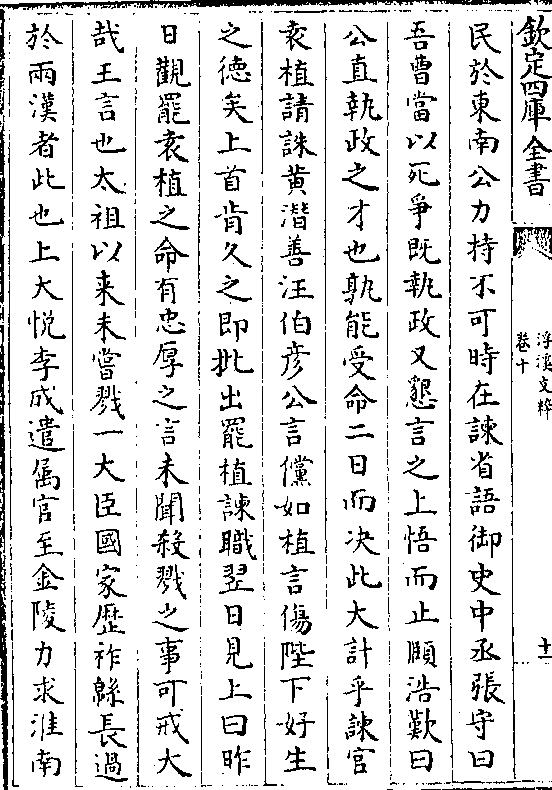 欽定四庫全書
浮溪文粹
卷十
十一
民於東南公力持不可時在諫省語御史中丞張守曰
吾曹當以死爭既執政又懇言之上悟而止頤浩歎曰
公直執政之才也孰能受命二日而決此大計乎諫官
袁植請誅黄潛善汪伯彦公言儻如植言傷陛下好生
之徳矣上首肯久之即批出罷植諫職翌日見上曰昨
日觀罷袁植之命有忠厚之言未聞殺戮之事可戒大
哉王言也太祖以来未嘗戮一大臣國家歴祚緜長過
於兩漢者此也上大悦李成遣属官至金陵力求淮南